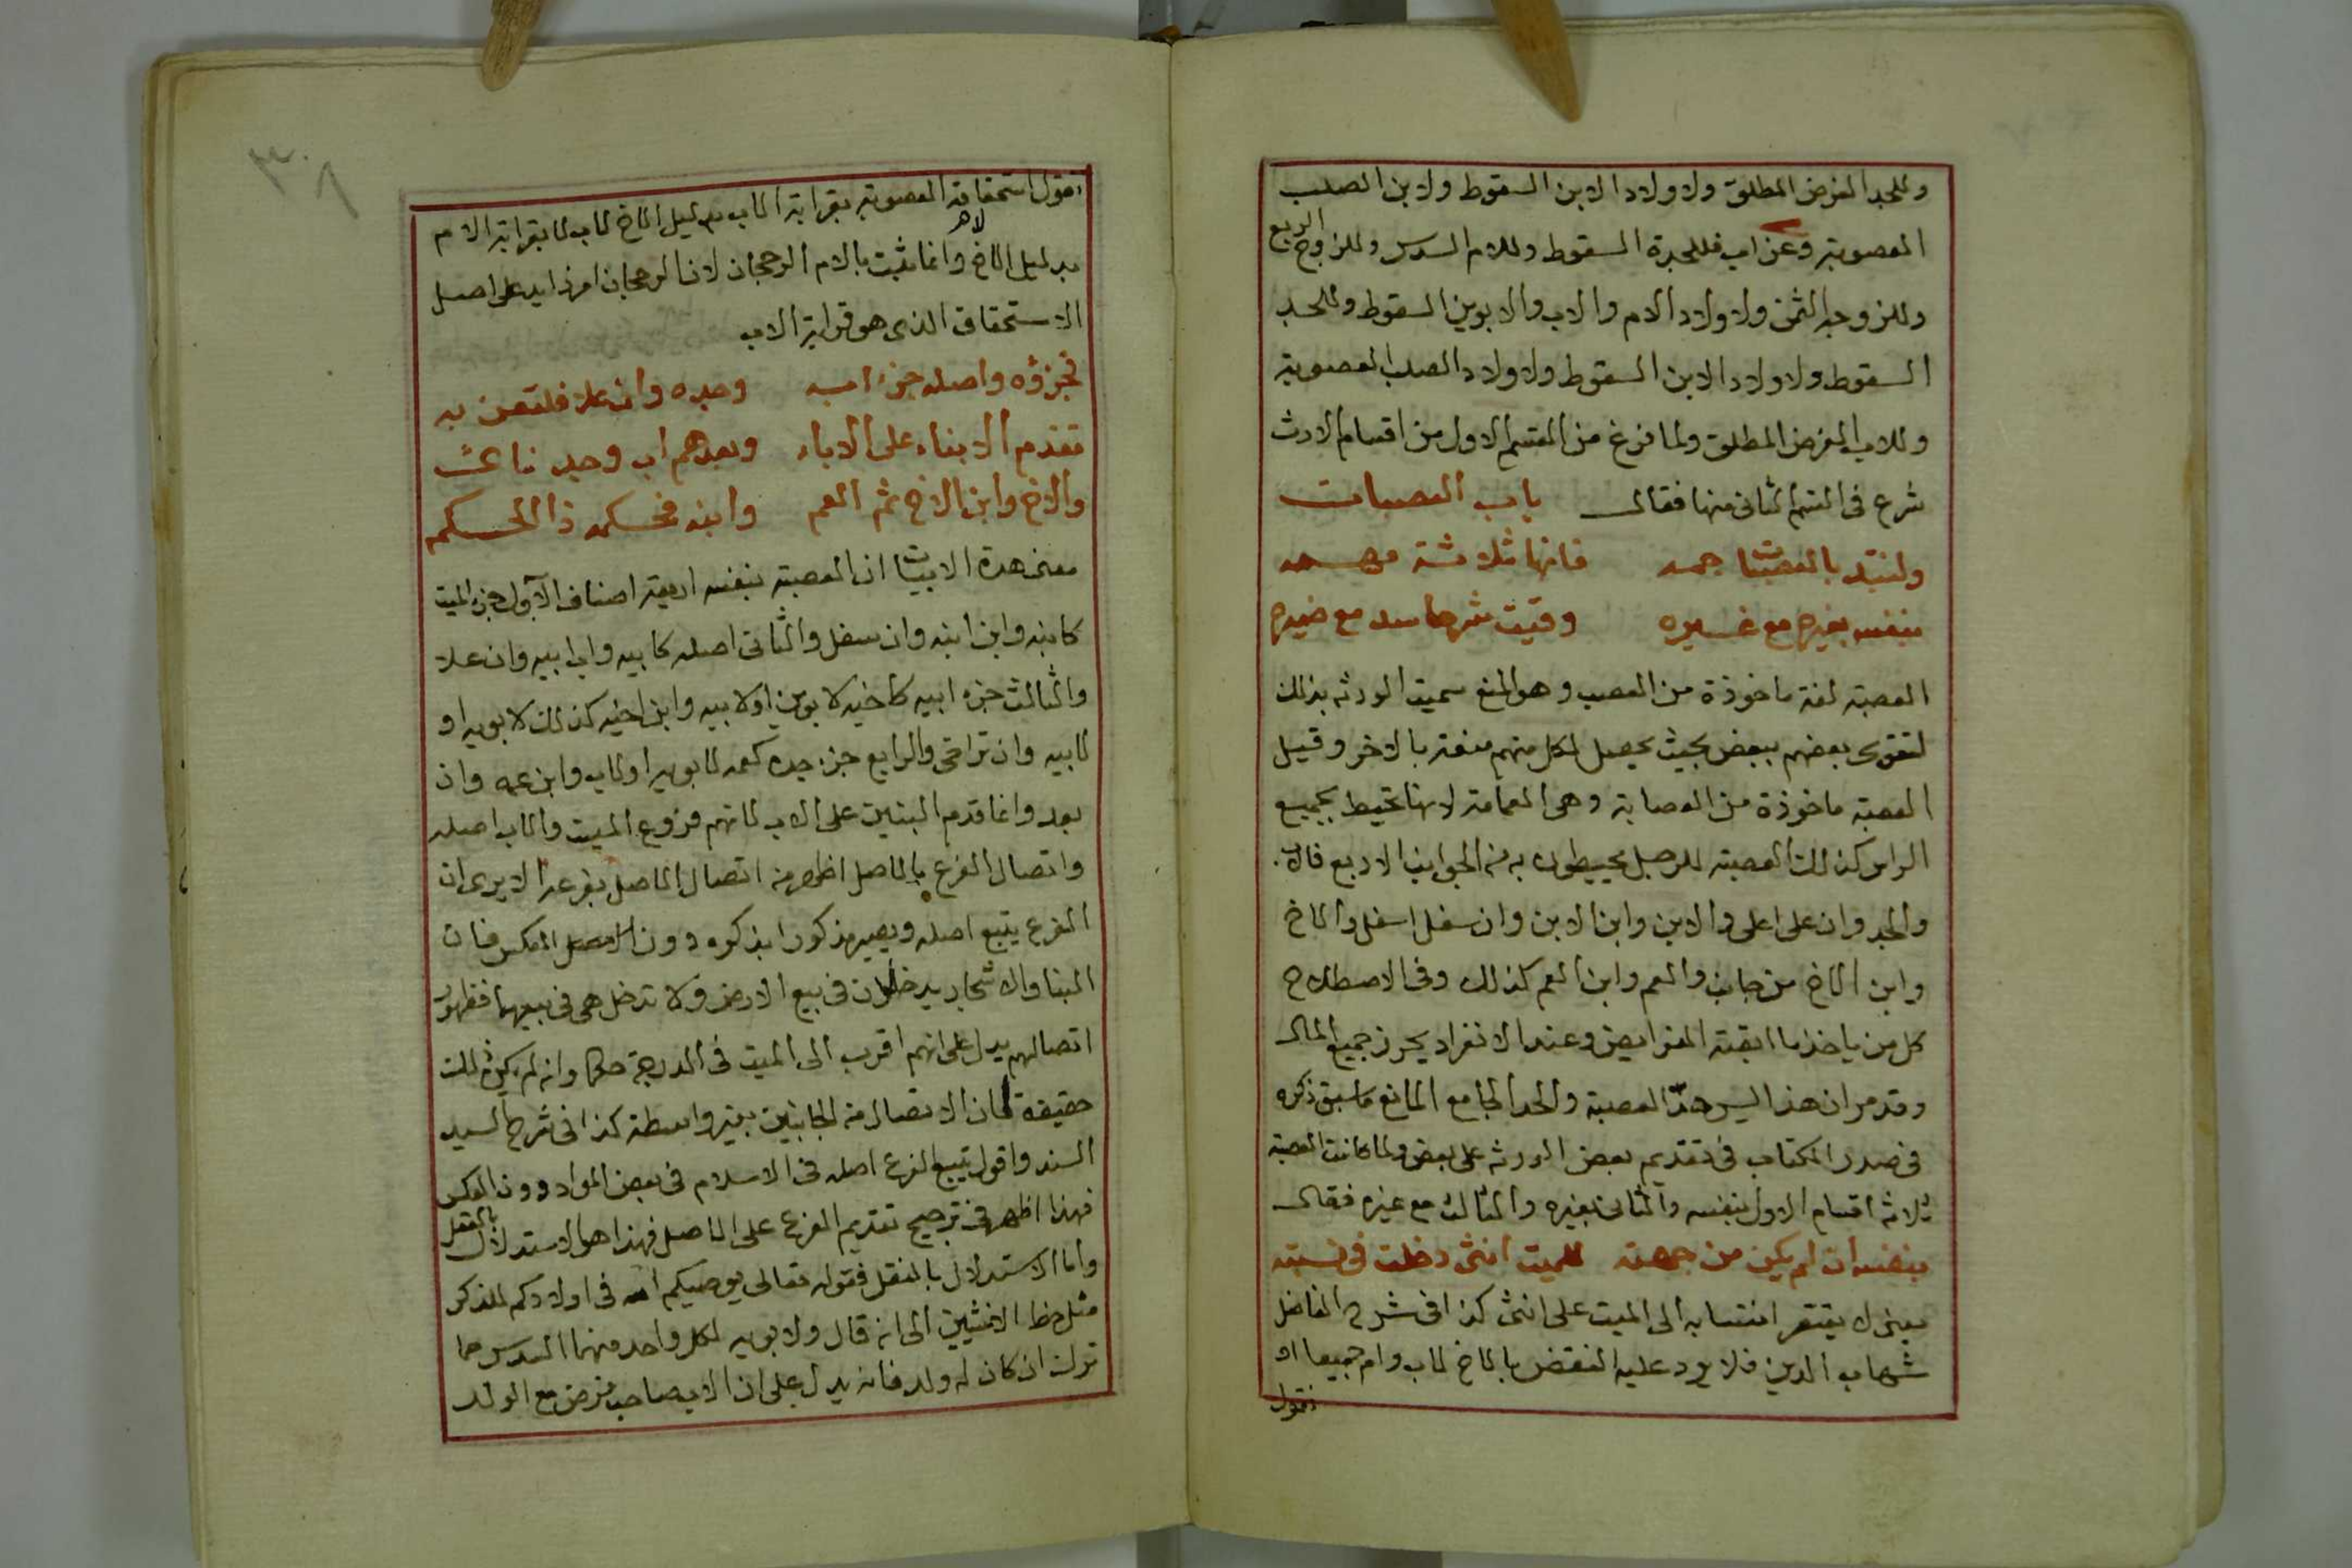 وللجد الفرض المطلق ولاولاد الابن السقوط ولابن الصلب
العصوبة وعن اب فللجدة السقوط وللام السدس وللزوج الربع
وللزوجة الثمن ولاولاد الام والاب والابوين السقوط وللجد
السقوط ولاولاد الابن السقوط ولاولاد الصلب العصوبة
وللاب الفرض المطلق ولما فرغ من القسم الاول من اقسام الارث
شرع فى القسم الثانى منها فقال باب العصبات
ولنبتد بالعصبات فانها ثلاثة
بنفسه بغيره مع غيره
العصبة لغة ماخوذة من العصب وهو المنع سميت الورثة بذلك
لتقوى بعضهم ببعض بحيث يحصل لكل منهم منعة بالاخر وقيل
العصبة ماخوذة من العصابة وهى العمامة لانها تحيط بجميع
الراس كذلك العصبة للرجل يحيطون به من الجوانب الاربع فالاب
والجد وان على اعلى والابن وابن الابن وان سفل اسفل والاخ
وابن الاخ من جانب والعم وابن العم كذلك وفى الاصطلاح
كل من ياخذ ما ابقته الفرايض وعند الانفراد يحرز جميع المال
وقد مر ان هذا ليس حد العصبة والحد الجامع المانع ما سبق ذكره
فى صدر الكتاب فى تقديم بعض الورثة على بعض ولما كانت العصبة
ثلاثة اقسام الاول بنفسه والثانى بغيره والثالث مع غيره فقال
بنفسه ان لم يكن من جهته للميت انثى دخلت فى نسبته
يعنى لا يفتقر انتسابه الى الميت على انثى كذا فى شرح الفاضل
شهاب الدين فلا يرد عليه النقض بالاخ لاب وام جميعا
نقول
٣٠٨
نقول استحقاقه العصوبة بقرابة الاب بدليل الاخ لاب لا بقرابة الام
بدليل الاخ لام وانما يثبت بالام الرجحان لان الرجحان امر زايد على اصل
الاستحقاق الذى هو قرابة الاب
فجزؤه واصله جزء ابيه وجده وان علا فلتعن به
تقدم الابناء على الاباء وبعدهم اب وجد
والاخ وابن الاخ ثم العم وابنه فحكمه ذا الحكم
معنى هذه الابيات ان العصبة بنفسه اربعة اصناف الاول جزء الميت
كابنه وابن ابنه وان سفل والثانى اصله كابيه وابى ابيه وان علا
والثالث جزء ابيه كاخيه لابوين او لابيه وابن اخيه كذلك لابويه او
لابيه وان تراخى والرابع جزء جده كعمه لابويه او لاب وابن عمه وان
بعد وانما قدم البنين على الاب لانهم فروع الميت والاب اصله
واتصال الفرع بالاصل اظهر من اتصال الاصل بفرعه الا يرى ان
الفرع يتبع اصله ويصير مذكورا بذكره دون العكس فان
البنا والاشجار يدخلان فى بيع الارض ولا تدخل هى فى بيعهما فظهور
اتصالهم يدل على انهم اقرب الى الميت فى الدرجة حكما وان لم يكن ذلك
حقيقة لان الاتصال من الجانبين بغير واسطة كذا فى شرح السيد
السند واقول يتبع الفرع اصله فى الاسلام فى بعض المواد دون العكس
فهذا اظهر فى ترجيح تقديم الفرع على الاصل فهذا هو الاستدلال بالعقل
واما الاستدلال بالنقل فقوله تعالى يوصيكم الله فى اولادكم للذكر
مثل حظ الانثيين الى ان قال ولابويه لكل واحد منهما السدس مما
ترك ان كان له ولد فانه يدل على ان الاب صاحب فرض مع الولد